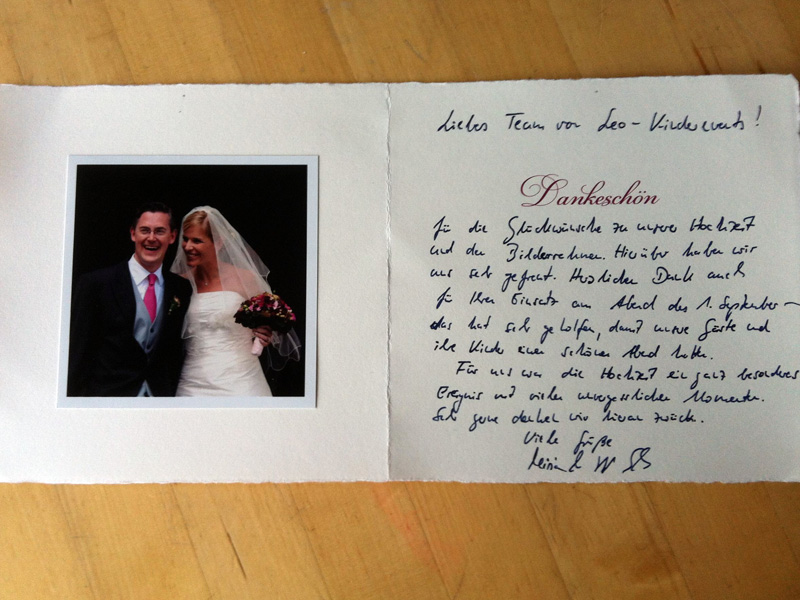 Liebes Team von Leo-Kinderevents!
Dankeschön
für die Glückwünsche zu unserer Hochzeit
und den Bilderrahmen. Hierüber haben wir
uns sehr gefreut. Herzlichen Dank auch
für Ihren Einsatz am Abend des 1. September –
das hat sehr geholfen, damit unsere Gäste und
ihre Kinder einen schönen Abend hatten.
Für uns war die Hochzeit ein ganz besonderes
Ereignis mit vielen unvergesslichen Momenten.
Sehr gerne denken wir hieran zurück.
Viele Grüße